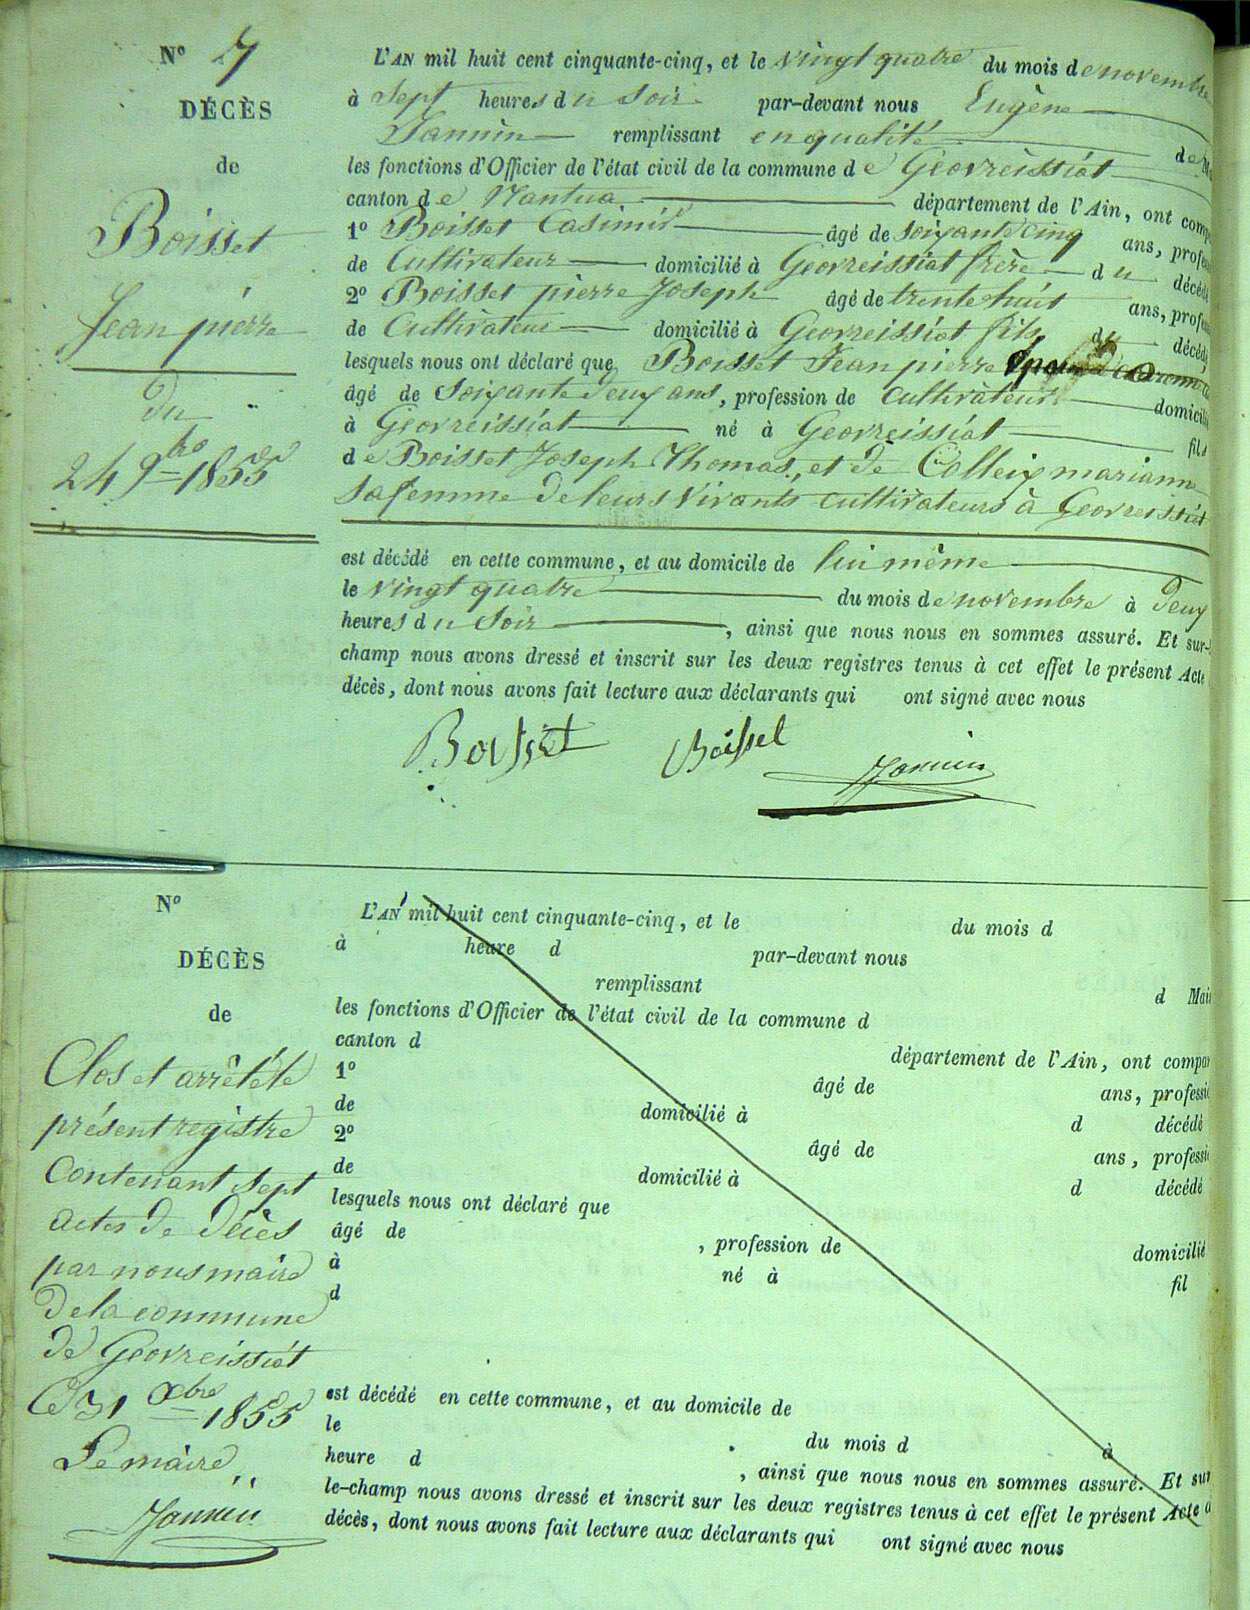 N° 7
DÉCÈS
de
Boisset
Jean pierre
du
24 9bre 1855
L'AN mil huit cent cinquante-cinq, et le vingt quatre du mois de novembre
à Sept heures du Soir par-devant nous Eugène
Jannin remplissant en qualité de
les fonctions d'Officier de l'état civil de la commune de Géovreissiat
canton de Nantua département de l'Ain, ont comp
1° Boisset Casimir âgé de soixante cinq ans, profes
de Cultivateur domicilié à Géovreissiat frère du décédé
2° Boisset pierre Joseph âgé de trente huit ans, profes
de Cultivateur domicilié à Géovreissiat fils du décédé
lesquels nous ont déclaré que Boisset Jean pierre
âgé de Soixante deux ans, profession de cultivateur domicili
à Géovreissiat né à Géovreissiat fils
de Boisset Joseph Thomas, et de Colleix mariann
Sa femme de leurs Vivants cultivateurs à Géovreissiat
est décédé en cette commune, et au domicile de lui même
le vingt quatre du mois de novembre à Deux
heures du Soir, ainsi que nous nous en sommes assuré. Et sur-
champ nous avons dressé et inscrit sur les deux registres tenus à cet effet le présent Acte
décès, dont nous avons fait lecture aux déclarants qui ont signé avec nous
Boisset Boissel Jannin
N°
DÉCÈS
de
Clos et arrêté le
présent registre
Contenant sept
actes de décès
par nous maire
de la commune
de Géovreissiat
Ce 31 Xbre 1855
Le maire
Jannin
L'AN mil huit cent cinquante-cinq, et le du mois d
à heure d par-devant nous
remplissant d Mai
les fonctions d'Officier de l'état civil de la commune d
canton d département de l'Ain, ont compar
1° âgé de ans, professi
de domicilié à d décédé
2° âgé de ans, professi
de domicilié à d décédé
lesquels nous ont déclaré que
âgé de , profession de domicilié
à né à fil
d
est décédé en cette commune, et au domicile de
le du mois d à
heure d , ainsi que nous nous en sommes assuré. Et sur
le-champ nous avons dressé et inscrit sur les deux registres tenus à cet effet le présent Acte d
décès, dont nous avons fait lecture aux déclarants qui ont signé avec nous